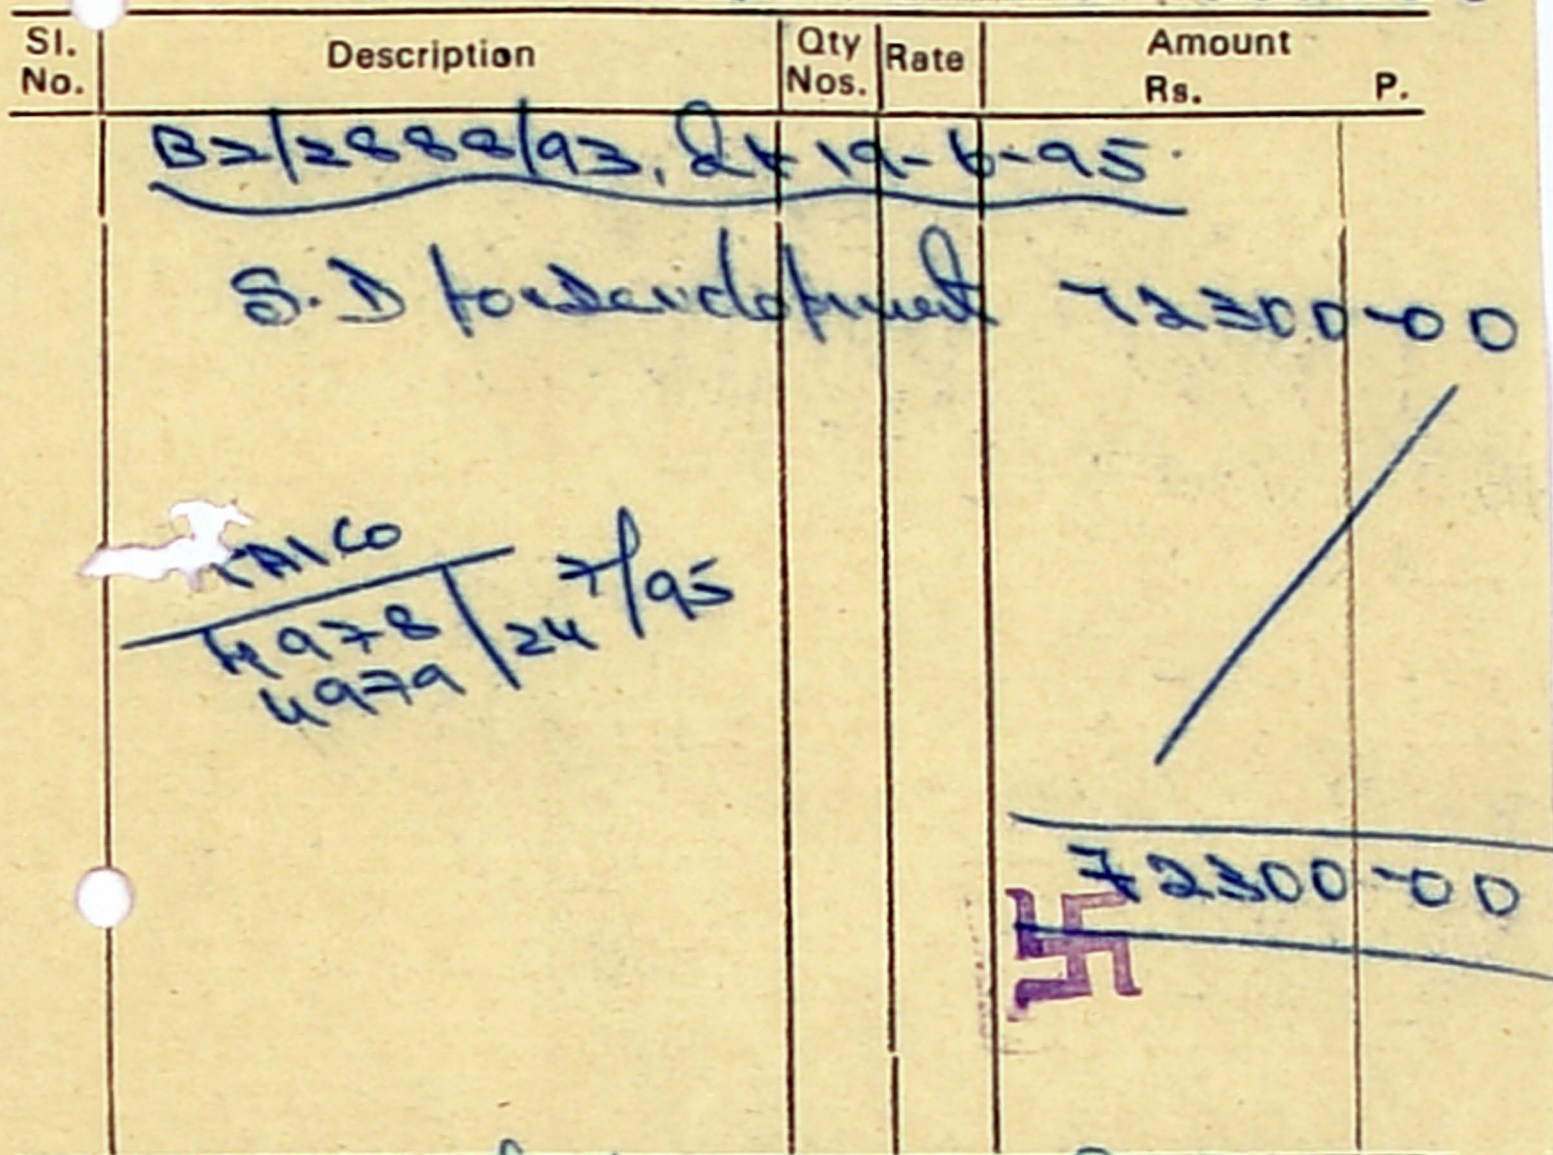 Sl. No. Description Qty Nos. Rate Amount Rs. P.
B2/2888/93, Dt 19-6-95.
S.D for development 72300-00
TAICO
4978
4979 24/7/95
72300-00